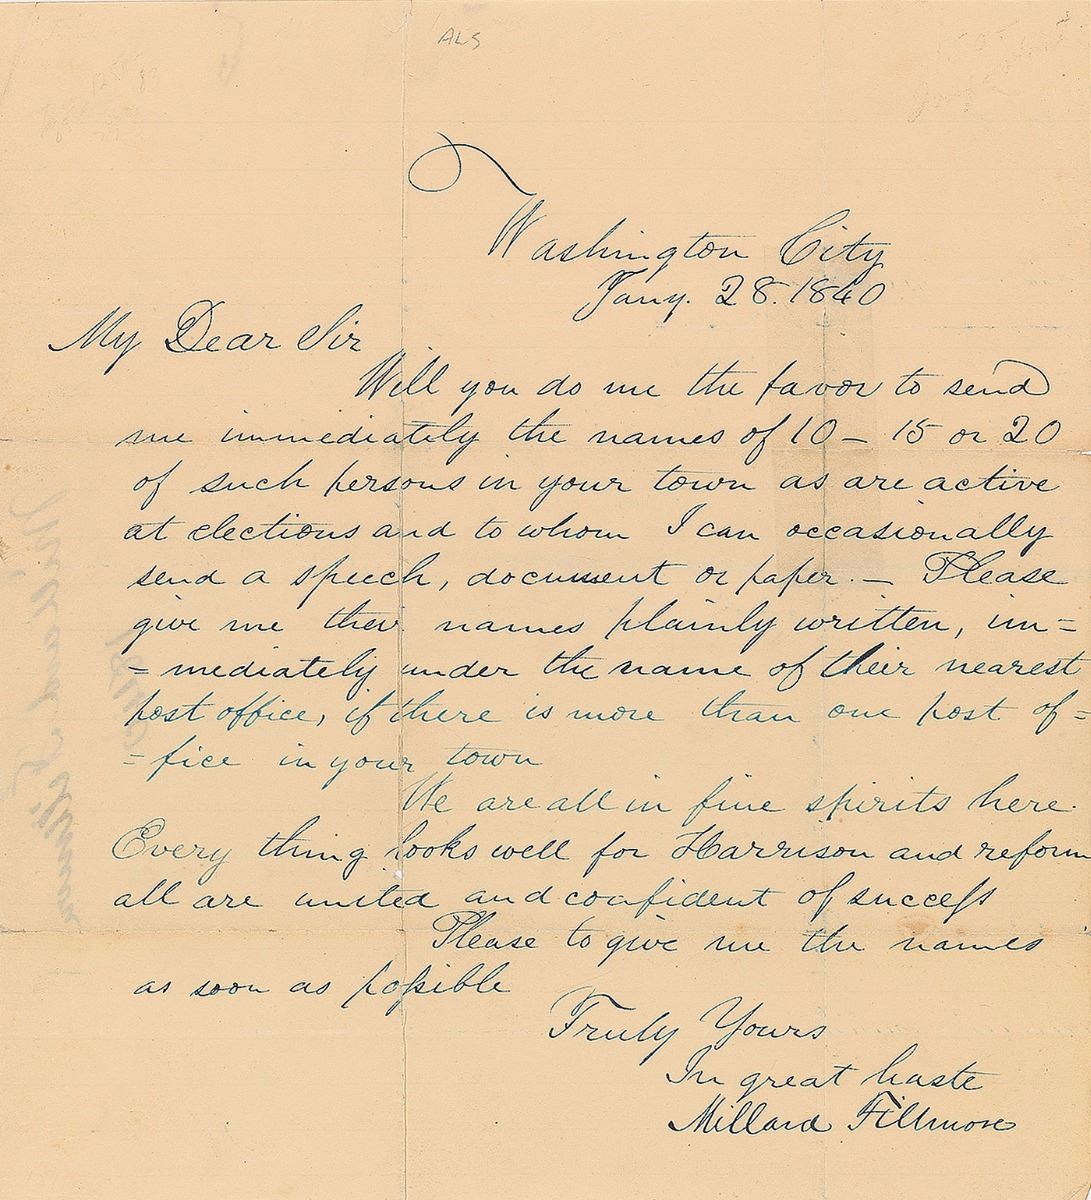 ALS
Washington City
Jany. 28. 1840
My Dear Sir
Will you do me the favor to send
me immediately the names of 10 – 15 or 20
of such persons in your town as are active
at elections and to whom I can occasionally
send a speech, document or paper. – Please
give me their names plainly written, im=
= mediately under the name of their nearest
post office, if there is more than one post of=
= fice in your town
We are all in fine spirits here.
Every thing looks well for Harrison and reform
all are united and confident of succeſs
Please to give me the names
as soon as poſsible
Truly Yours
In great haste
Millard Fillmore